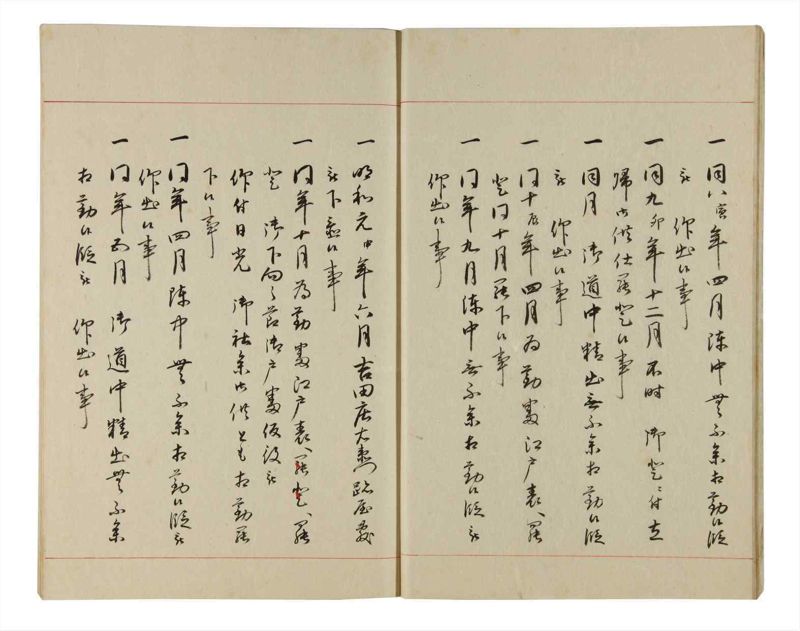 一同八寅年四月陳中無不参相勤候段
被　仰出候事
一同九卯年十二月不時　御登ニ付立
帰御供仕罷登候事
一同月　御道中精出無不参相勤候段
被　仰出候事
一同十辰年四月為勤番江戸表へ罷
登同十月罷下候事
一同年九月陳中無不参相勤候段被
仰出候事
一明和元申年六月吉田庄太夫跡屋敷
被下置候事
一同年十月為勤番江戸表へ罷登、罷
登　御下向之節御戸番仮役被
仰付日光　御社参御供とも相勤罷
下候事
一同年四月陳中無不参相勤候段被
仰出候事
一同年五月　御道中精出無不参
相勤候段被　仰出候事